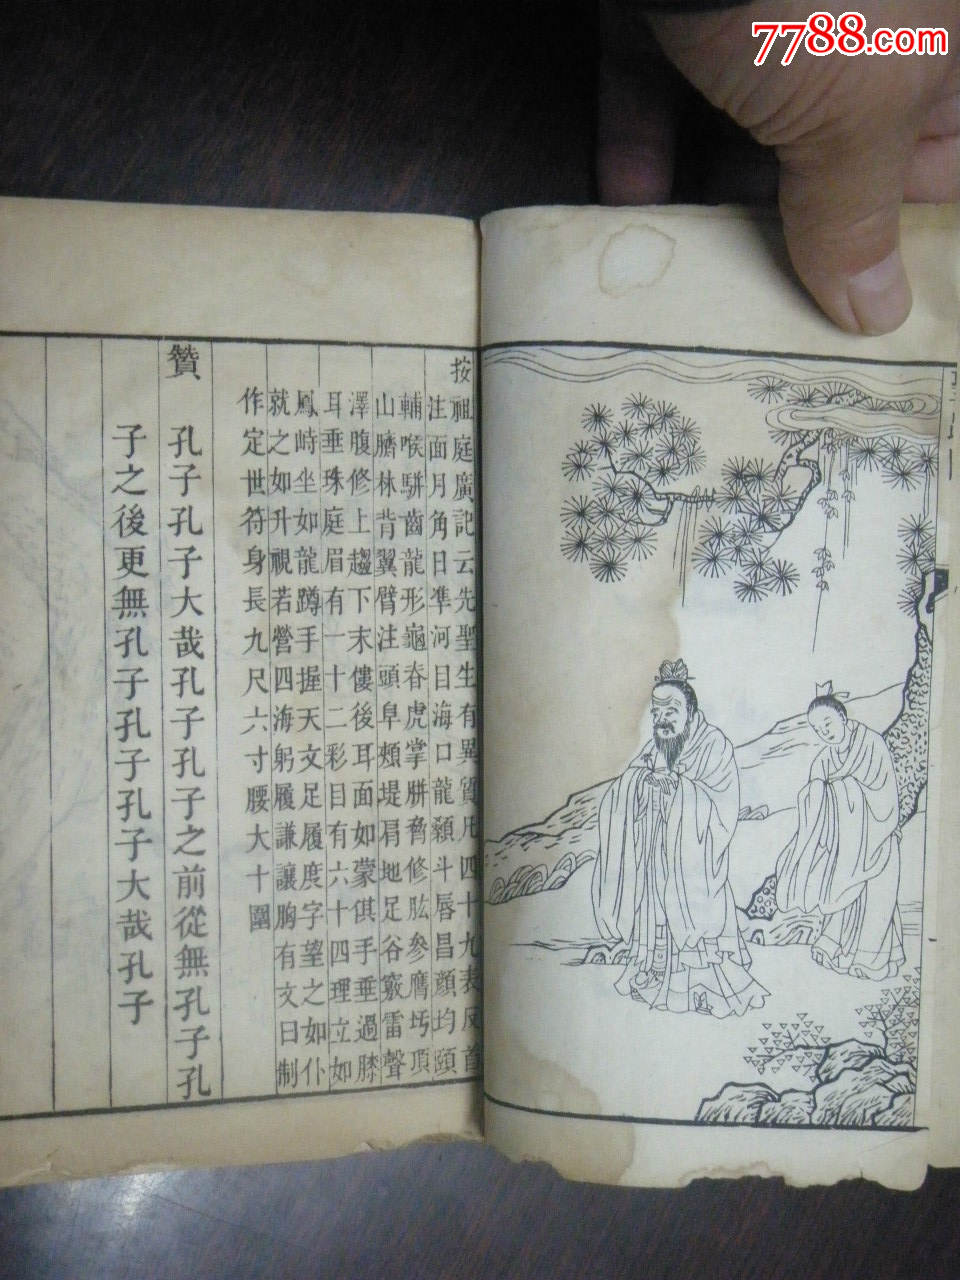 7788.com
按祖庭廣記云先聖生有異質凡四十九表反首
注面月角日準河目海口龍顙斗唇昌顏均頤
輔喉駢齒龍形龜脊虎掌胼脅修肱參膺圬頂
山臍林背翼臂注頭阜頰堤眉地足谷竅雷聲
澤腹修上趨下末僂後耳面如蒙倛手垂過膝
耳垂珠庭眉有一十二彩目有六十四理立如
鳳峙坐如龍蹲手握天文足履度字望之如仆
就之如升視若營四海躬履謙讓胸有文曰制
作定世符身長九尺六寸腰大十圍
贊
孔子孔子大哉孔子孔子之前從無孔子孔
子之後更無孔子孔子孔子大哉孔子